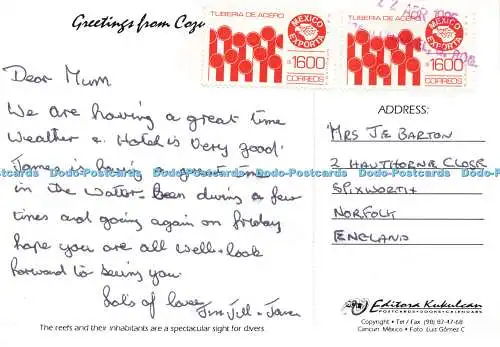 Greetings from Cozu
TUBERIA DE ACERO
MEXICO EXPORTA
1600
CORREOS
TUBERIA DE ACERO
MEXICO EXPORTA
1600
CORREOS
22 APR
Dear Mum
We are having a great time
Weather & Hotel is Very good.
James is having a great time
in the Watter. Been diving a few
times and going again on friday
hope you are all well. look
forward to seeing you.
Lots of love
Jim Jill
The reefs and their inhabitants are a spectacular sight for divers
ADDRESS:
MRS J E BARTON
2 HAWTHORNE CLOSE
SPIXWORTH
NORFOLK
ENGLAND
Editora Kukulcan
POSTCARDS • BOOKS • CALENDARS
Copyright • Tel / Fax (98) 87-47-68
Cancun México • Foto Luis Gómez C
Dodo-Postcards Dodo-Postcards Dodo-Postcards Dodo-Postcards